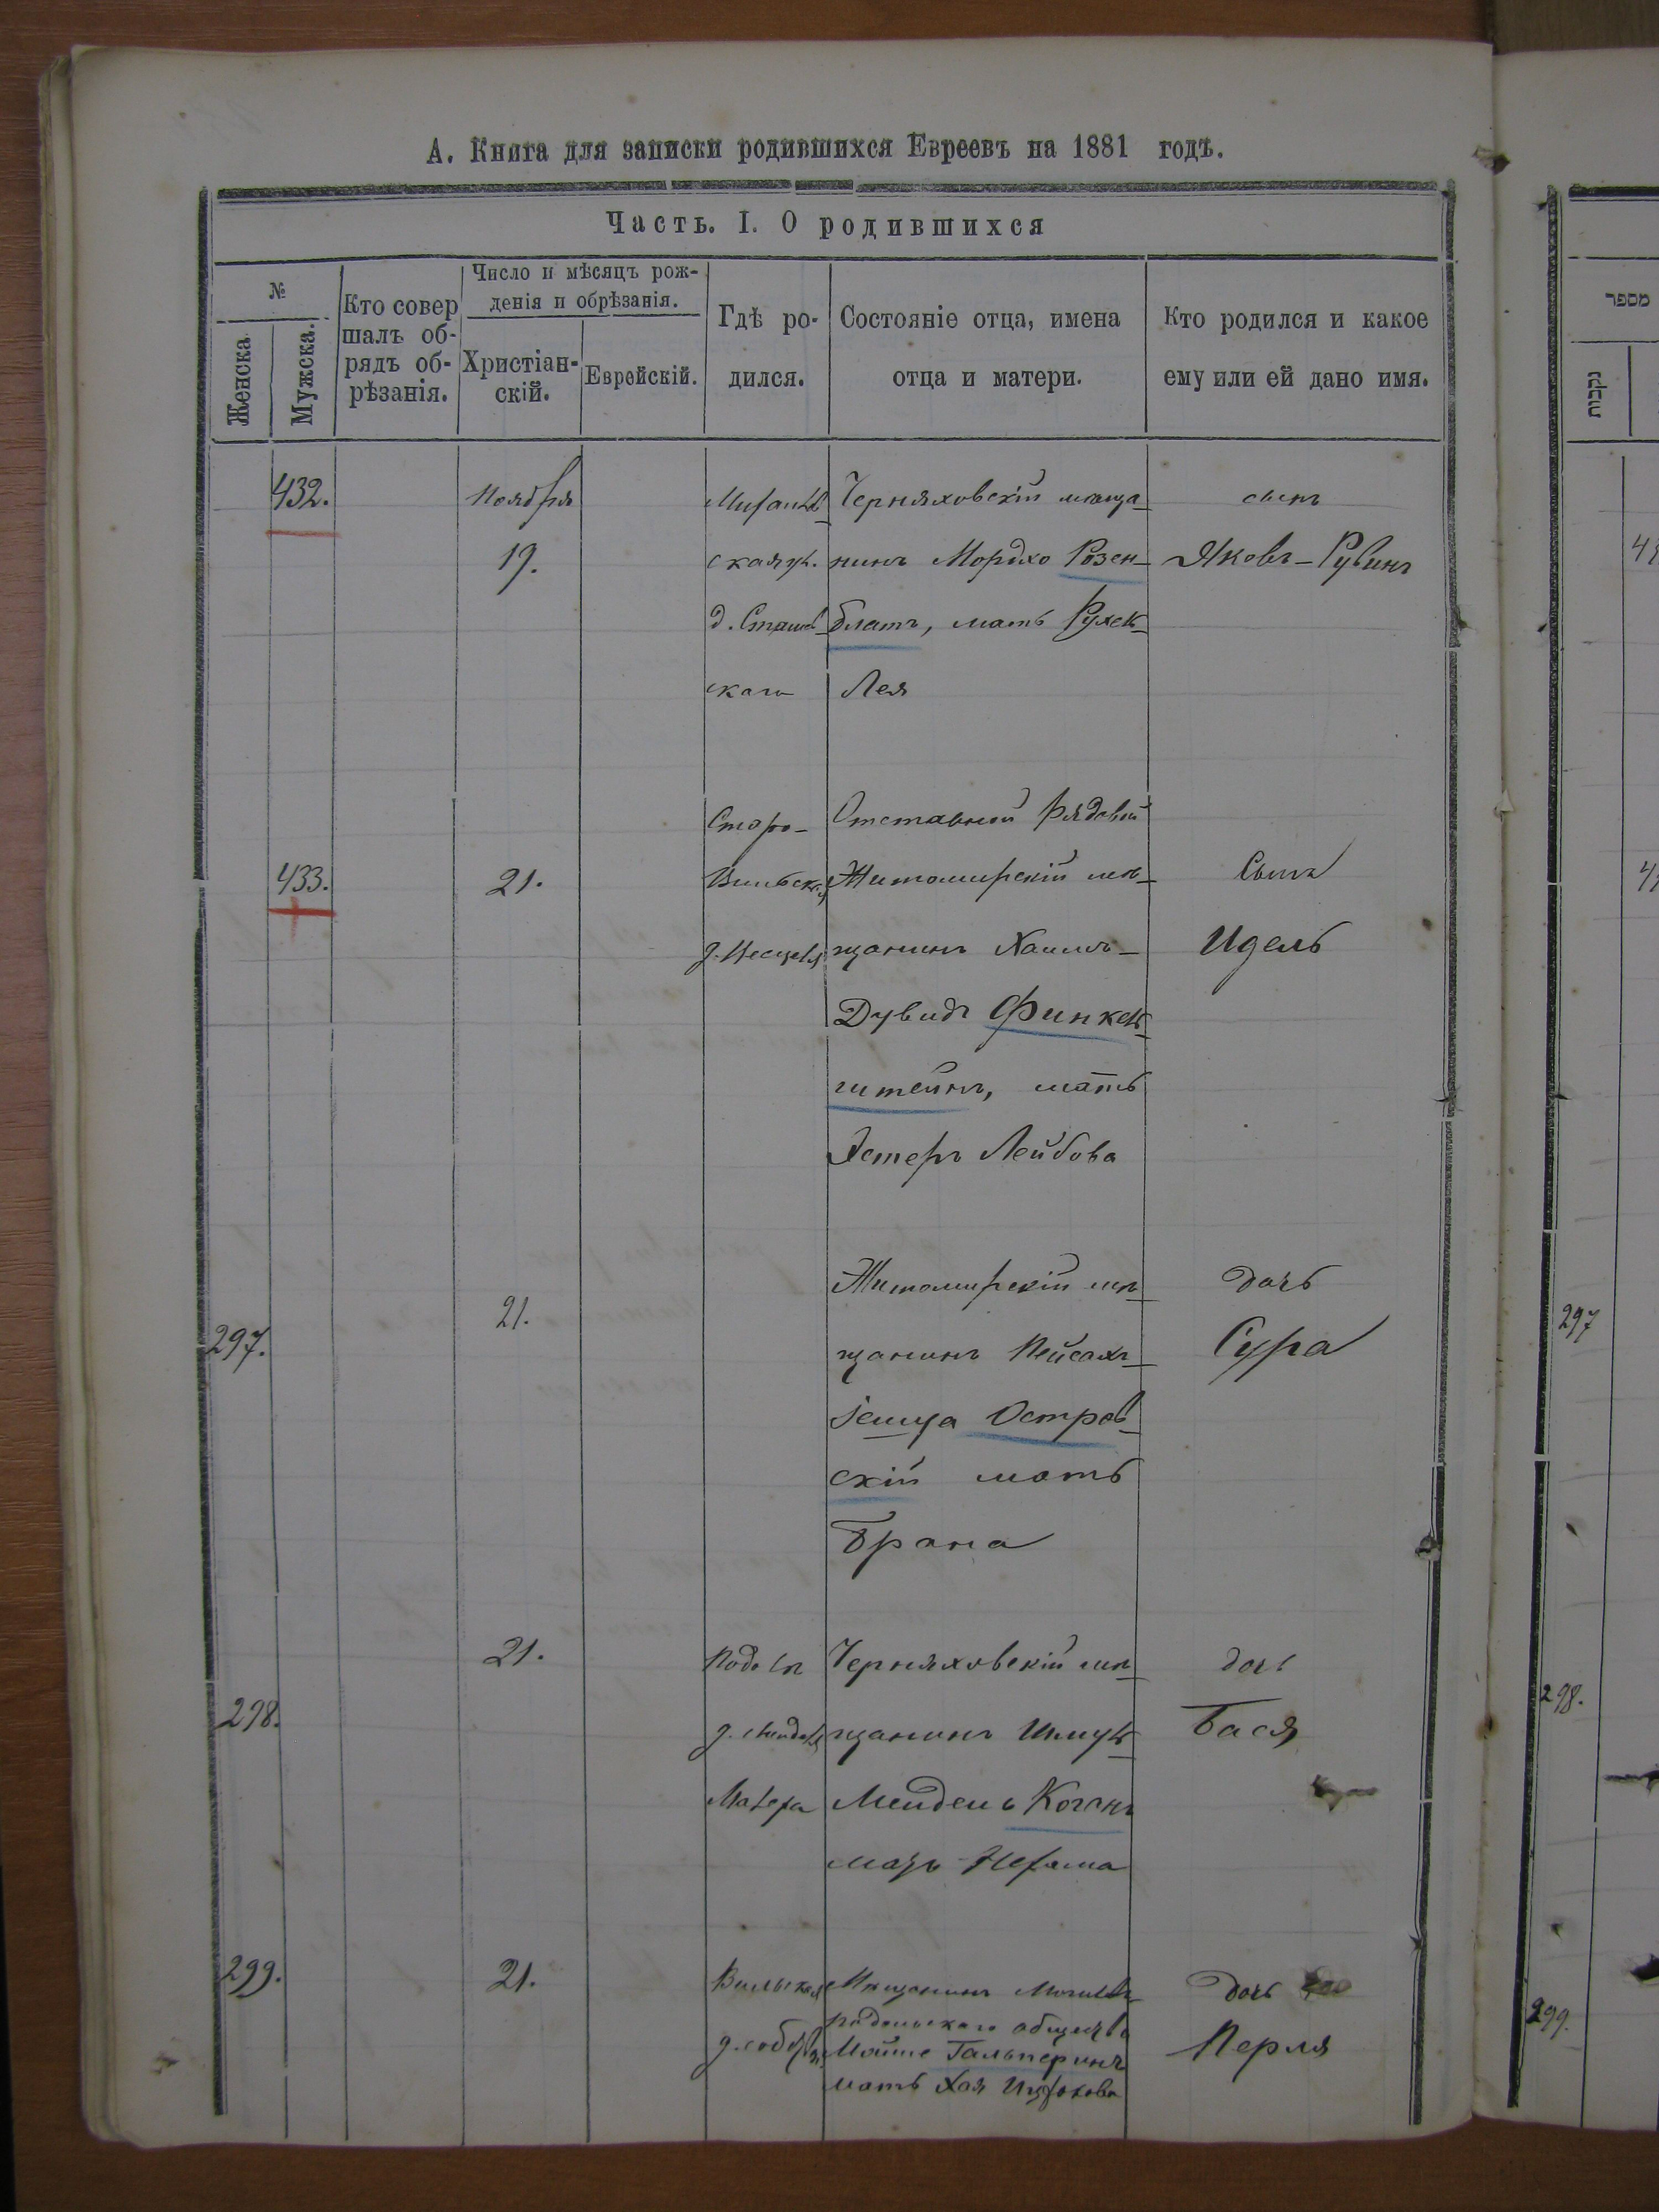 А. Книга для записки родившихся Евреевъ на 1881 годъ.
Часть. I. О родившихся
№
Женска
Мужска.
Кто совер
шалъ об-
рядъ об-
рѣзанія.
Число и мѣсяцъ рож-
денія и обрѣзанія.
Христіан-
скій.
Еврейскій.
Гдѣ ро-
дился.
Состояніе отца, имена
отца и матери.
Кто родился и какое
ему или ей дано имя.
432.
Ноября
19.
ская ул.
ского
Черняховскій мѣща-
нинъ Мордко Розен-
блатъ, мать Рухель-
Лея
сынъ
Яковъ-Рувинъ
433.
21.
Старо-
Вильская
Отставной рядовой
Житомирскій мѣ-
щанинъ Хаимъ-
Дувидъ Финкель-
штейнъ, мать
Эстеръ Лейбова
Сынъ
Идель
297.
21.
Житомирскій мѣ-
щанинъ Пейсахъ-
Остров-
скій мать
Брана
дочь
Сура
298.
21.
Черняховскій мѣ-
щанинъ Шмуль-
Мендель Коганъ
мать Нехама
дочь
Бася
299.
21.
Вильская
Мѣщанинъ Могилевъ-
подольскаго общества
Мойше Гальперинъ
мать Хая
дочь
Перля
מספר
נקבות
297
298.
299.